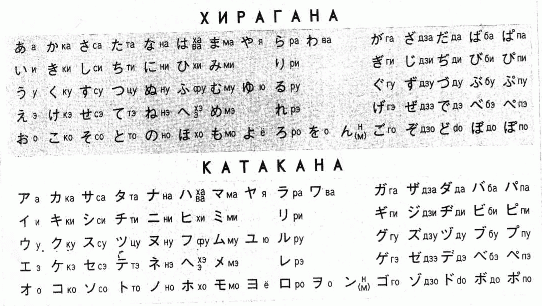 ХИРАГАНА
あ а か ка さ са た та な на は ха ва ま ма や я ら ра わ ва が га ざ дза だ да ば ба ぱ па
い и き ки し си ち ти に ни ひ хи み ми り ри ぎ ги じ дзи ぢ дзи び би ぴ пи
う у く ку す су つ цу ぬ ну ふ фу む му ゆ ю る ру ぐ гу ず дзу づ дзу ぶ бу ぷ пу
え э け кэ せ сэ て тэ ね нэ へ хэ э め мэ れ рэ げ гэ ぜ дзэ で дэ べ бэ ぺ пэ
お о こ ко そ со と то の но ほ хо も мо よ ё ろ ро を о ん н (м) ご го ぞ дзо ど do ぼ до ぽ по
КАТАКАНА
ア а カ ка サ са タ та ナ на ハ ха ва マ ма ヤ я ラ ра ワ ва ガ га ザ дза ダ да バ ба パ па
イ и キ ки シ си チ ти ニ ни ヒ хи ミ ми リ ри ギ ги ジ дзи ヂ дзи ビ би ピ пи
ウ у ク ку ス су ツ цу ヌ ну フ фу ム му ユ ю ル ру グ гу ズ дзу ヅ дзу ブ бу プ пу
エ э ケ кэ セ сэ テ тэ ネ нэ ヘ хэ э メ мэ レ рэ ゲ гэ ゼ дзэ デ дэ ベ бэ ペ пэ
オ о コ ко ソ со ト то ノ но ホ хо モ мо ヨ ё ロ ро ヲ о ン н (м) ゴ го ゾ дзо ド do ボ до ポ по